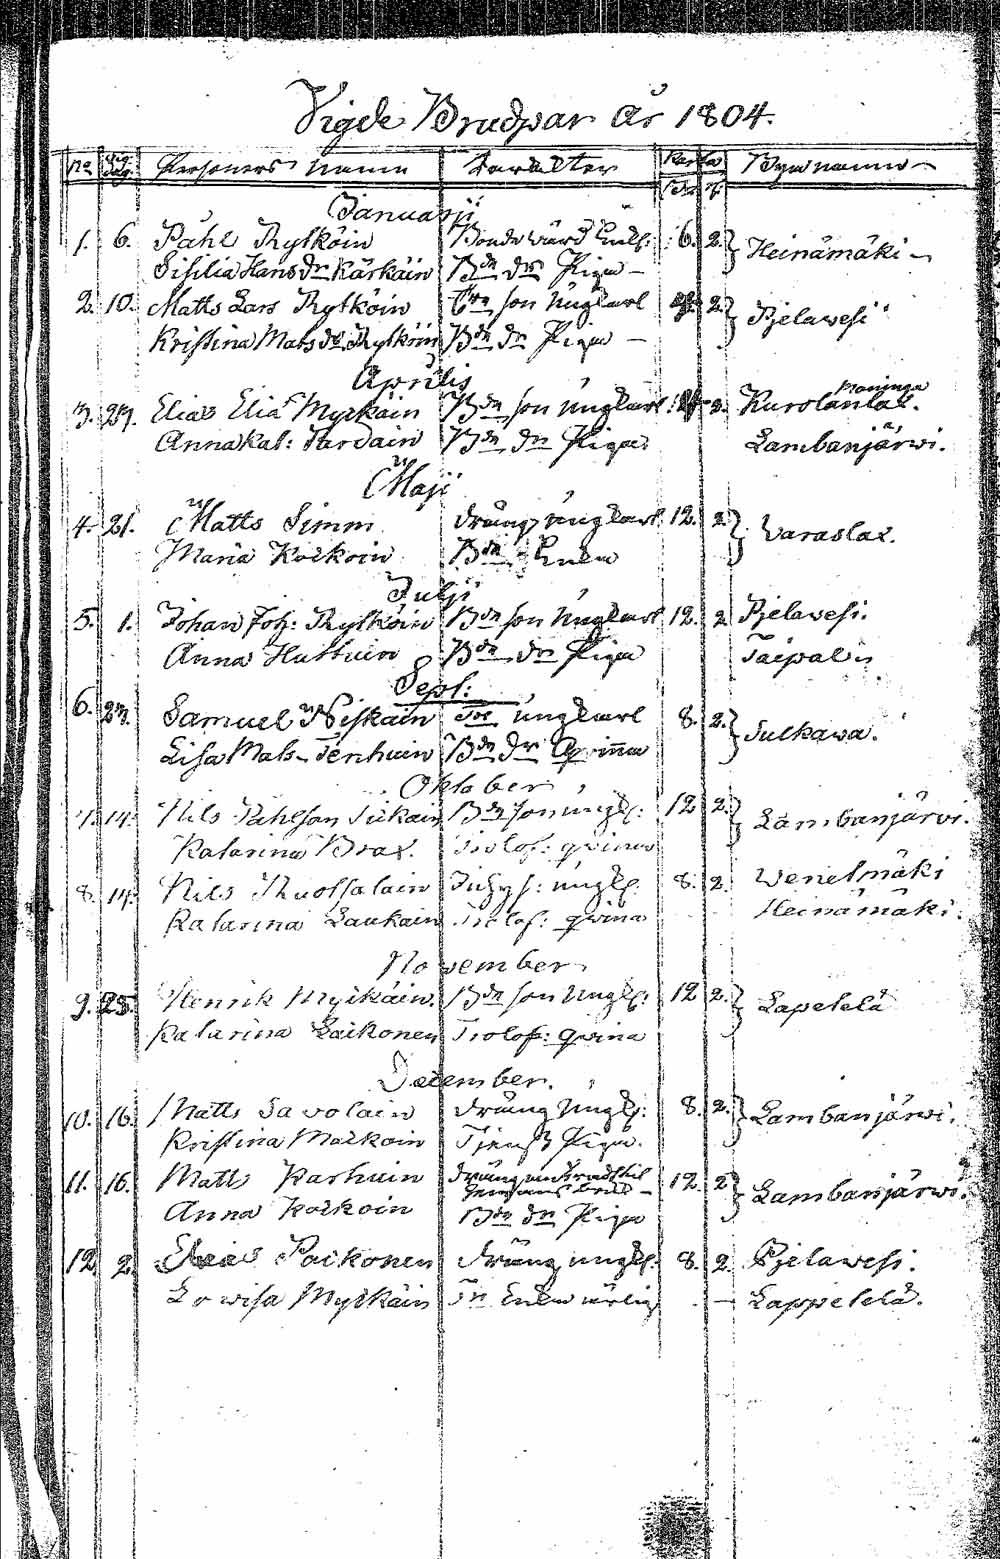 Vigde Brudpar År 1804.
No Vig. dag. Personers Namn Karakter Bynamn
Januarji
1. 6. Påhl Rytköin Bonde 6. 2. Heinämäki
Sisilia Hans dr Kärkäin Bdn dr Piga
2. 10. Matts Lars Rytköin son Ungkarl 2. Pjelavesi
Kristina Mats dr Rytköin Bdn dr Piga
Aprilis
3. 23. Elias Elia Mykkäin Bdn son Ungkarl 2. Kurolanlax.
Maninga
Anna Kat: Tardain Bdn dr Piga Lambanjärvi.
Maji
4. 21. Matts Simm dräng ungkarl 12. 2 Varaslax.
Maria Kokkoin Bdn Enka
Julji
5. 1. Johan Joh: Rytköin Bdn son Ungkarl 12. 2 Pjelavesi.
Anna Huttuin Bdn dr Piga Taipal
Sept:
6. 23. Samuel Niskain ungkarl 8. 2. Sulkava.
Lisa Mats Tenhuin Bdn dr Qvinna
Oktober
7. 14. Nils Påhlson Tikkain Bdn son ungk: 12 2. Lambanjärvi.
Katarina Brax. Trolof: qvina
8. 14. Nils Ruotsalain ungk: 8. 2. Venetmäki
Katarina Laukain Trolof: qvina Heinämäki.
November
9. 25. Henrik Mykkäin. Bdn son Ungk: 12 2. Lapetelä
Katarina Laikonen Trolof: qvina
December.
10. 16. Matts Savolain dräng Ungk: 8. 2. Lambanjärvi.
Kristina Markoin Tjenst Piga.
11. 16. Matts Karhuin dräng 12. 2 Lambanjärvi.
Anna Kokkoin Bdn dr Piga
12 2. Paikonen dräng ungk: 8. 2. Pjelavesi.
Lowisa Mykkäin Enka ärlig – Lappetelä.